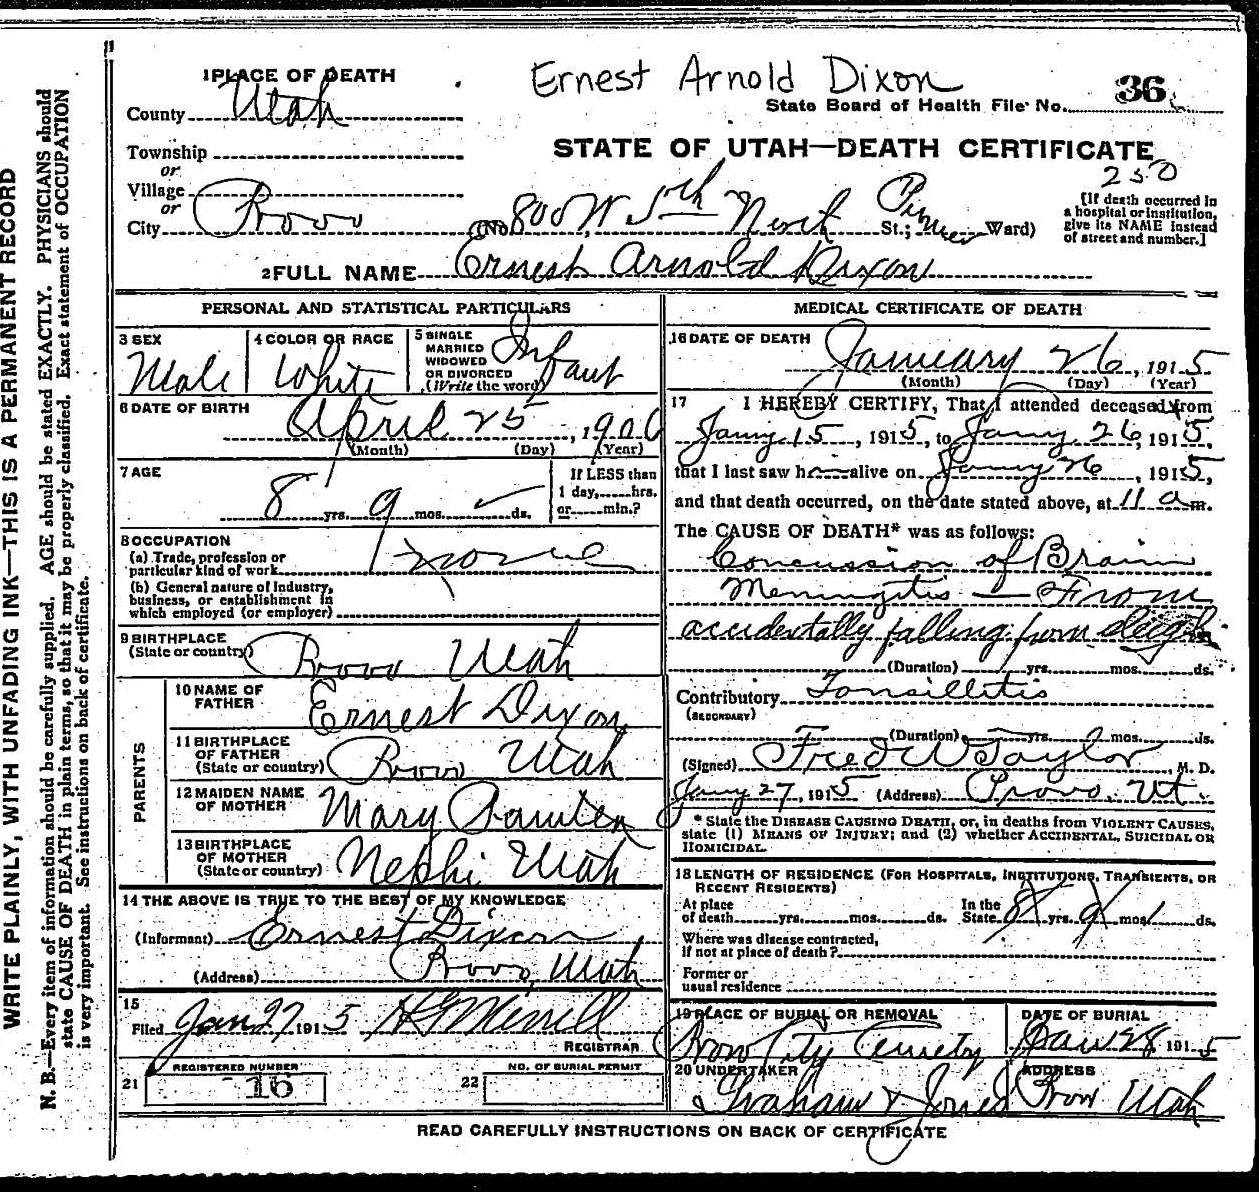 Ernest Arnold Dixon
1 PLACE OF DEATH
State Board of Health File No. 36
County Utah
STATE OF UTAH—DEATH CERTIFICATE
Township
or
Village
or
City Provo (No. 800 W 5th North St.; Pioneer Ward)
250
[If death occurred in a hospital or institution, give its NAME instead of street and number.]
2 FULL NAME Ernest Arnold Dixon
PERSONAL AND STATISTICAL PARTICULARS
3 SEX
Male
4 COLOR OR RACE
White
5 SINGLE
MARRIED
WIDOWED
OR DIVORCED
(Write the word)
Infant
6 DATE OF BIRTH
April 25, 1906
(Month) (Day) (Year)
7 AGE
8 yrs. 9 mos. ds.
If LESS than
1 day, hrs.
or min.?
8 OCCUPATION
(a) Trade, profession or
particular kind of work
none
(b) General nature of industry,
business, or establishment in
which employed (or employer)
9 BIRTHPLACE
(State or country)
Provo Utah
PARENTS
10 NAME OF
FATHER
Ernest Dixon
11 BIRTHPLACE
OF FATHER
(State or country)
Provo Utah
12 MAIDEN NAME
OF MOTHER
Mary
13 BIRTHPLACE
OF MOTHER
(State or country)
Nephi Utah
14 THE ABOVE IS TRUE TO THE BEST OF MY KNOWLEDGE
(Informant) Ernest Dixon
(Address) Provo, Utah
15
Filed Jan 27 1915 Merrill
REGISTRAR
REGISTERED NUMBER
21 16
NO. OF BURIAL PERMIT
22
MEDICAL CERTIFICATE OF DEATH
16 DATE OF DEATH
January 26, 1915
(Month) (Day) (Year)
17 I HEREBY CERTIFY, That I attended deceased from
Jany 15, 1915, to Jany 26, 1915,
that I last saw h alive on Jany 26, 1915,
and that death occurred, on the date stated above, at 11 a m.
The CAUSE OF DEATH* was as follows:
Concussion of Brain
Meningitis — From
accidentally falling from sleigh
(Duration) yrs. mos. ds.
Contributory Tonsillitis
(SECONDARY)
(Duration) yrs. mos. ds.
(Signed) Fred W Taylor, M. D.
Jany 27, 1915 (Address) Provo. Ut.
* State the DISEASE CAUSING DEATH, or, in deaths from VIOLENT CAUSES,
state (1) MEANS OF INJURY; and (2) whether ACCIDENTAL, SUICIDAL OR
HOMICIDAL.
18 LENGTH OF RESIDENCE (FOR HOSPITALS, INSTITUTIONS, TRANSIENTS, OR
RECENT RESIDENTS)
At place
of death yrs. mos. ds.
In the
State 8 yrs. 9 mos 1 ds.
Where was disease contracted,
if not at place of death?
Former or
usual residence
19 PLACE OF BURIAL OR REMOVAL
Provo City Cemetery
DATE OF BURIAL
Jan 28 1915
20 UNDERTAKER
Graham & Jones
ADDRESS
Provo Utah
READ CAREFULLY INSTRUCTIONS ON BACK OF CERTIFICATE
WRITE PLAINLY, WITH UNFADING INK—THIS IS A PERMANENT RECORD
N. B.—Every item of information should be carefully supplied. AGE should be stated EXACTLY. PHYSICIANS should
state CAUSE OF DEATH in plain terms, so that it may be properly classified. Exact statement of OCCUPATION
is very important. See instructions on back of certificate.